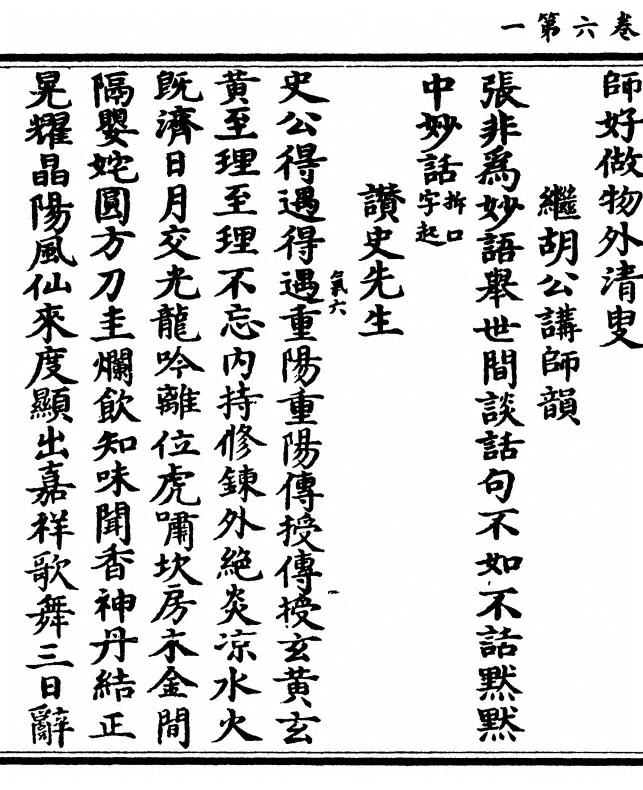 卷六第一
師好做物外清叟
繼胡公講師韻
張非為妙語舉世間談話句不如不話默默
中妙話拆口字起
讚史先生
氣六
史公得遇得遇重陽重陽傳授傳授玄黃玄
黃至理至理不忘內持修鍊外絶炎凉水火
既濟日月交光龍吟離位虎嘯坎房木金間
隔嬰姹圓方刀圭爛飲知味聞香神丹結正
晃耀晶陽風仙來度顯出嘉祥歌舞三日辭